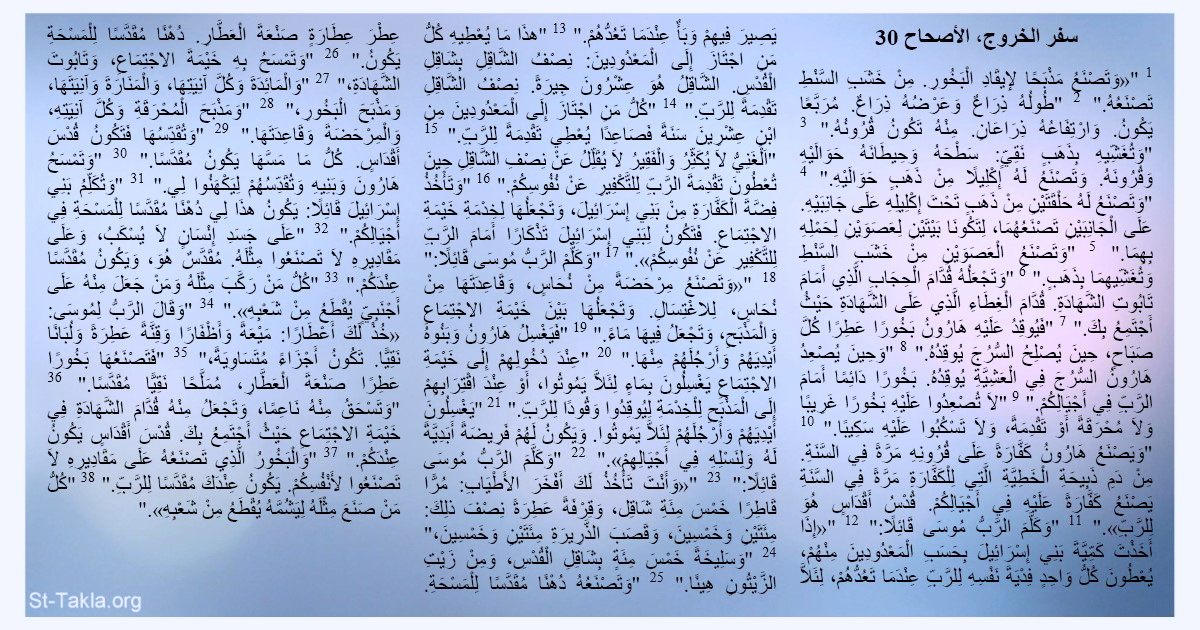 سفر الخروج، الأصحاح 30
1 "«وَتَصْنَعُ مَذْبَحًا لإِيقَادِ الْبَخُورِ. مِنْ خَشَبِ السَّنْطِ
تَصْنَعُهُ." 2 "طُولُهُ ذِرَاعٌ وَعَرْضُهُ ذِرَاعٌ. مُرَبَّعًا
يَكُونُ. وَارْتِفَاعُهُ ذِرَاعَانِ. مِنْهُ تَكُونُ قُرُونُهُ." 3
"وَتُغَشِّيهِ بِذَهَبٍ نَقِيٍّ: سَطْحَهُ وَحِيطَانَهُ حَوَالَيْهِ
وَقُرُونَهُ. وَتَصْنَعُ لَهُ إِكْلِيلًا مِنْ ذَهَبٍ حَوَالَيْهِ." 4
"وَتَصْنَعُ لَهُ حَلْقَتَيْنِ مِنْ ذَهَبٍ تَحْتَ إِكْلِيلِهِ عَلَى جَانِبَيْهِ.
عَلَى الْجَانِبَيْنِ تَصْنَعُهُمَا، لِتَكُونَا بَيْتَيْنِ لِعَصَوَيْنِ لِحَمْلِهِ
بِهِمَا." 5 "وَتَصْنَعُ الْعَصَوَيْنِ مِنْ خَشَبِ السَّنْطِ
وَتُغَشِّيهِمَا بِذَهَبٍ." 6 "وَتَجْعَلُهُ قُدَّامَ الْحِجَابِ الَّذِي أَمَامَ
تَابُوتِ الشَّهَادَةِ. قُدَّامَ الْغِطَاءِ الَّذِي عَلَى الشَّهَادَةِ حَيْثُ
أَجْتَمِعُ بِكَ." 7 "فَيُوقِدُ عَلَيْهِ هَارُونُ بَخُورًا عَطِرًا كُلَّ
صَبَاحٍ، حِينَ يُصْلِحُ السُّرُجَ يُوقِدُهُ." 8 "وَحِينَ يُصْعِدُ
هَارُونُ السُّرُجَ فِي الْعَشِيَّةِ يُوقِدُهُ. بَخُورًا دَائِمًا أَمَامَ
الرَّبِّ فِي أَجْيَالِكُمْ." 9 "لاَ تُصْعِدُوا عَلَيْهِ بَخُورًا غَرِيبًا
وَلاَ مُحْرَقَةً أَوْ تَقْدِمَةً، وَلاَ تَسْكُبُوا عَلَيْهِ سَكِيبًا." 10
"وَيَصْنَعُ هَارُونُ كَفَّارَةً عَلَى قُرُونِهِ مَرَّةً فِي السَّنَةِ.
مِنْ دَمِ ذَبِيحَةِ الْخَطِيَّةِ الَّتِي لِلْكَفَّارَةِ مَرَّةً فِي السَّنَةِ
يَصْنَعُ كَفَّارَةً عَلَيْهِ فِي أَجْيَالِكُمْ. قُدْسُ أَقْدَاسٍ هُوَ
لِلرَّبِّ»." 11 "وَكَلَّمَ الرَّبُّ مُوسَى قَائِلًا:" 12 "«إِذَا
أَخَذْتَ كَمِّيَّةَ بَنِي إِسْرَائِيلَ بِحَسَبِ الْمَعْدُودِينَ مِنْهُمْ،
يُعْطُونَ كُلُّ وَاحِدٍ فِدْيَةَ نَفْسِهِ لِلرَّبِّ عِنْدَمَا تَعُدُّهُمْ، لِئَلاَّ
يَصِيرَ فِيهِمْ وَبَأٌ عِنْدَمَا تَعُدُّهُمْ." 13 "هذَا مَا يُعْطِيهِ كُلُّ
مَنِ اجْتَازَ إِلَى الْمَعْدُودِينَ: نِصْفُ الشَّاقِلِ بِشَاقِلِ
الْقُدْسِ. الشَّاقِلُ هُوَ عِشْرُونَ جِيرَةً. نِصْفُ الشَّاقِلِ
تَقْدِمَةً لِلرَّبِّ." 14 "كُلُّ مَنِ اجْتَازَ إِلَى الْمَعْدُودِينَ مِنِ
ابْنِ عِشْرِينَ سَنَةً فَصَاعِدًا يُعْطِي تَقْدِمَةً لِلرَّبِّ." 15
"اَلْغَنِيُّ لاَ يُكَثِّرُ وَالْفَقِيرُ لاَ يُقَلِّلُ عَنْ نِصْفِ الشَّاقِلِ حِينَ
تُعْطُونَ تَقْدِمَةَ الرَّبِّ لِلتَّكْفِيرِ عَنْ نُفُوسِكُمْ." 16 "وَتَأْخُذُ
فِضَّةَ الْكَفَّارَةِ مِنْ بَنِي إِسْرَائِيلَ، وَتَجْعَلُهَا لِخِدْمَةِ خَيْمَةِ
الاجْتِمَاعِ. فَتَكُونُ لِبَنِي إِسْرَائِيلَ تَذْكَارًا أَمَامَ الرَّبِّ
لِلتَّكْفِيرِ عَنْ نُفُوسِكُمْ»." 17 "وَكَلَّمَ الرَّبُّ مُوسَى قَائِلًا:"
18 "«وَتَصْنَعُ مِرْحَضَةً مِنْ نُحَاسٍ، وَقَاعِدَتَهَا مِنْ
نُحَاسٍ، لِلاغْتِسَالِ. وَتَجْعَلُهَا بَيْنَ خَيْمَةِ الاجْتِمَاعِ
وَالْمَذْبَحِ، وَتَجْعَلُ فِيهَا مَاءً." 19 "فَيَغْسِلُ هَارُونُ وَبَنُوهُ
أَيْدِيَهُمْ وَأَرْجُلَهُمْ مِنْهَا." 20 "عِنْدَ دُخُولِهِمْ إِلَى خَيْمَةِ
الاجْتِمَاعِ يَغْسِلُونَ بِمَاءٍ لِئَلاَّ يَمُوتُوا، أَوْ عِنْدَ اقْتِرَابِهِمْ
إِلَى الْمَذْبَحِ لِلْخِدْمَةِ لِيُوقِدُوا وَقُودًا لِلرَّبِّ." 21 "يَغْسِلُونَ
أَيْدِيَهُمْ وَأَرْجُلَهُمْ لِئَلاَّ يَمُوتُوا. وَيَكُونُ لَهُمْ فَرِيضَةً أَبَدِيَّةً
لَهُ وَلِنَسْلِهِ فِي أَجْيَالِهِمْ»." 22 "وَكَلَّمَ الرَّبُّ مُوسَى
قَائِلًا:" 23 "«وَأَنْتَ تَأْخُذُ لَكَ أَفْخَرَ الأَطْيَابِ: مُرًّا
قَاطِرًا خَمْسَ مِئَةِ شَاقِل، وَقِرْفَةً عَطِرَةً نِصْفَ ذلِكَ:
مِئَتَيْنِ وَخَمْسِينَ، وَقَصَبَ الذَّرِيرَةِ مِئَتَيْنِ وَخَمْسِينَ،"
24 "وَسَلِيخَةً خَمْسَ مِئَةٍ بِشَاقِلِ الْقُدْسِ، وَمِنْ زَيْتِ
الزَّيْتُونِ هِينًا." 25 "وَتَصْنَعُهُ دُهْنًا مُقَدَّسًا لِلْمَسْحَةِ.
عِطْرَ عِطَارَةٍ صَنْعَةَ الْعَطَّارِ. دُهْنًا مُقَدَّسًا لِلْمَسْحَةِ
يَكُونُ." 26 "وَتَمْسَحُ بِهِ خَيْمَةَ الاجْتِمَاعِ، وَتَابُوتَ
الشَّهَادَةِ،" 27 "وَالْمَائِدَةَ وَكُلَّ آنِيَتِهَا، وَالْمَنَارَةَ وَآنِيَتَهَا،
وَمَذْبَحَ الْبَخُورِ،" 28 "وَمَذْبَحَ الْمُحْرَقَةِ وَكُلَّ آنِيَتِهِ،
وَالْمِرْحَضَةَ وَقَاعِدَتَهَا." 29 "وَتُقَدِّسُهَا فَتَكُونُ قُدْسَ
أَقْدَاسٍ. كُلُّ مَا مَسَّهَا يَكُونُ مُقَدَّسًا." 30 "وَتَمْسَحُ
هَارُونَ وَبَنِيهِ وَتُقَدِّسُهُمْ لِيَكْهَنُوا لِي." 31 "وَتُكَلِّمُ بَنِي
إِسْرَائِيلَ قَائِلًا: يَكُونُ هذَا لِي دُهْنًا مُقَدَّسًا لِلْمَسْحَةِ فِي
أَجْيَالِكُمْ." 32 "عَلَى جَسَدِ إِنْسَانٍ لاَ يُسْكَبُ، وَعَلَى
مَقَادِيرِهِ لاَ تَصْنَعُوا مِثْلَهُ. مُقَدَّسٌ هُوَ، وَيَكُونُ مُقَدَّسًا
عِنْدَكُمْ." 33 "كُلُّ مَنْ رَكَّبَ مِثْلَهُ وَمَنْ جَعَلَ مِنْهُ عَلَى
أَجْنَبِيٍّ يُقْطَعُ مِنْ شَعْبِهِ»." 34 "وَقَالَ الرَّبُّ لِمُوسَى:
«خُذْ لَكَ أَعْطَارًا: مَيْعَةً وَأَظْفَارًا وَقِنَّةً عَطِرَةً وَلُبَانًا
نَقِيًّا. تَكُونُ أَجْزَاءً مُتَسَاوِيَةً،" 35 "فَتَصْنَعُهَا بَخُورًا
عَطِرًا صَنْعَةَ الْعَطَّارِ، مُمَلَّحًا نَقِيًّا مُقَدَّسًا." 36
"وَتَسْحَقُ مِنْهُ نَاعِمًا، وَتَجْعَلُ مِنْهُ قُدَّامَ الشَّهَادَةِ فِي
خَيْمَةِ الاجْتِمَاعِ حَيْثُ أَجْتَمِعُ بِكَ. قُدْسَ أَقْدَاسٍ يَكُونُ
عِنْدَكُمْ." 37 "وَالْبَخُورُ الَّذِي تَصْنَعُهُ عَلَى مَقَادِيرِهِ لاَ
تَصْنَعُوا لأَنْفُسِكُمْ. يَكُونُ عِنْدَكَ مُقَدَّسًا لِلرَّبِّ." 38 "كُلُّ
مَنْ صَنَعَ مِثْلَهُ لِيَشُمَّهُ يُقْطَعُ مِنْ شَعْبِهِ»."
St-Takla.org